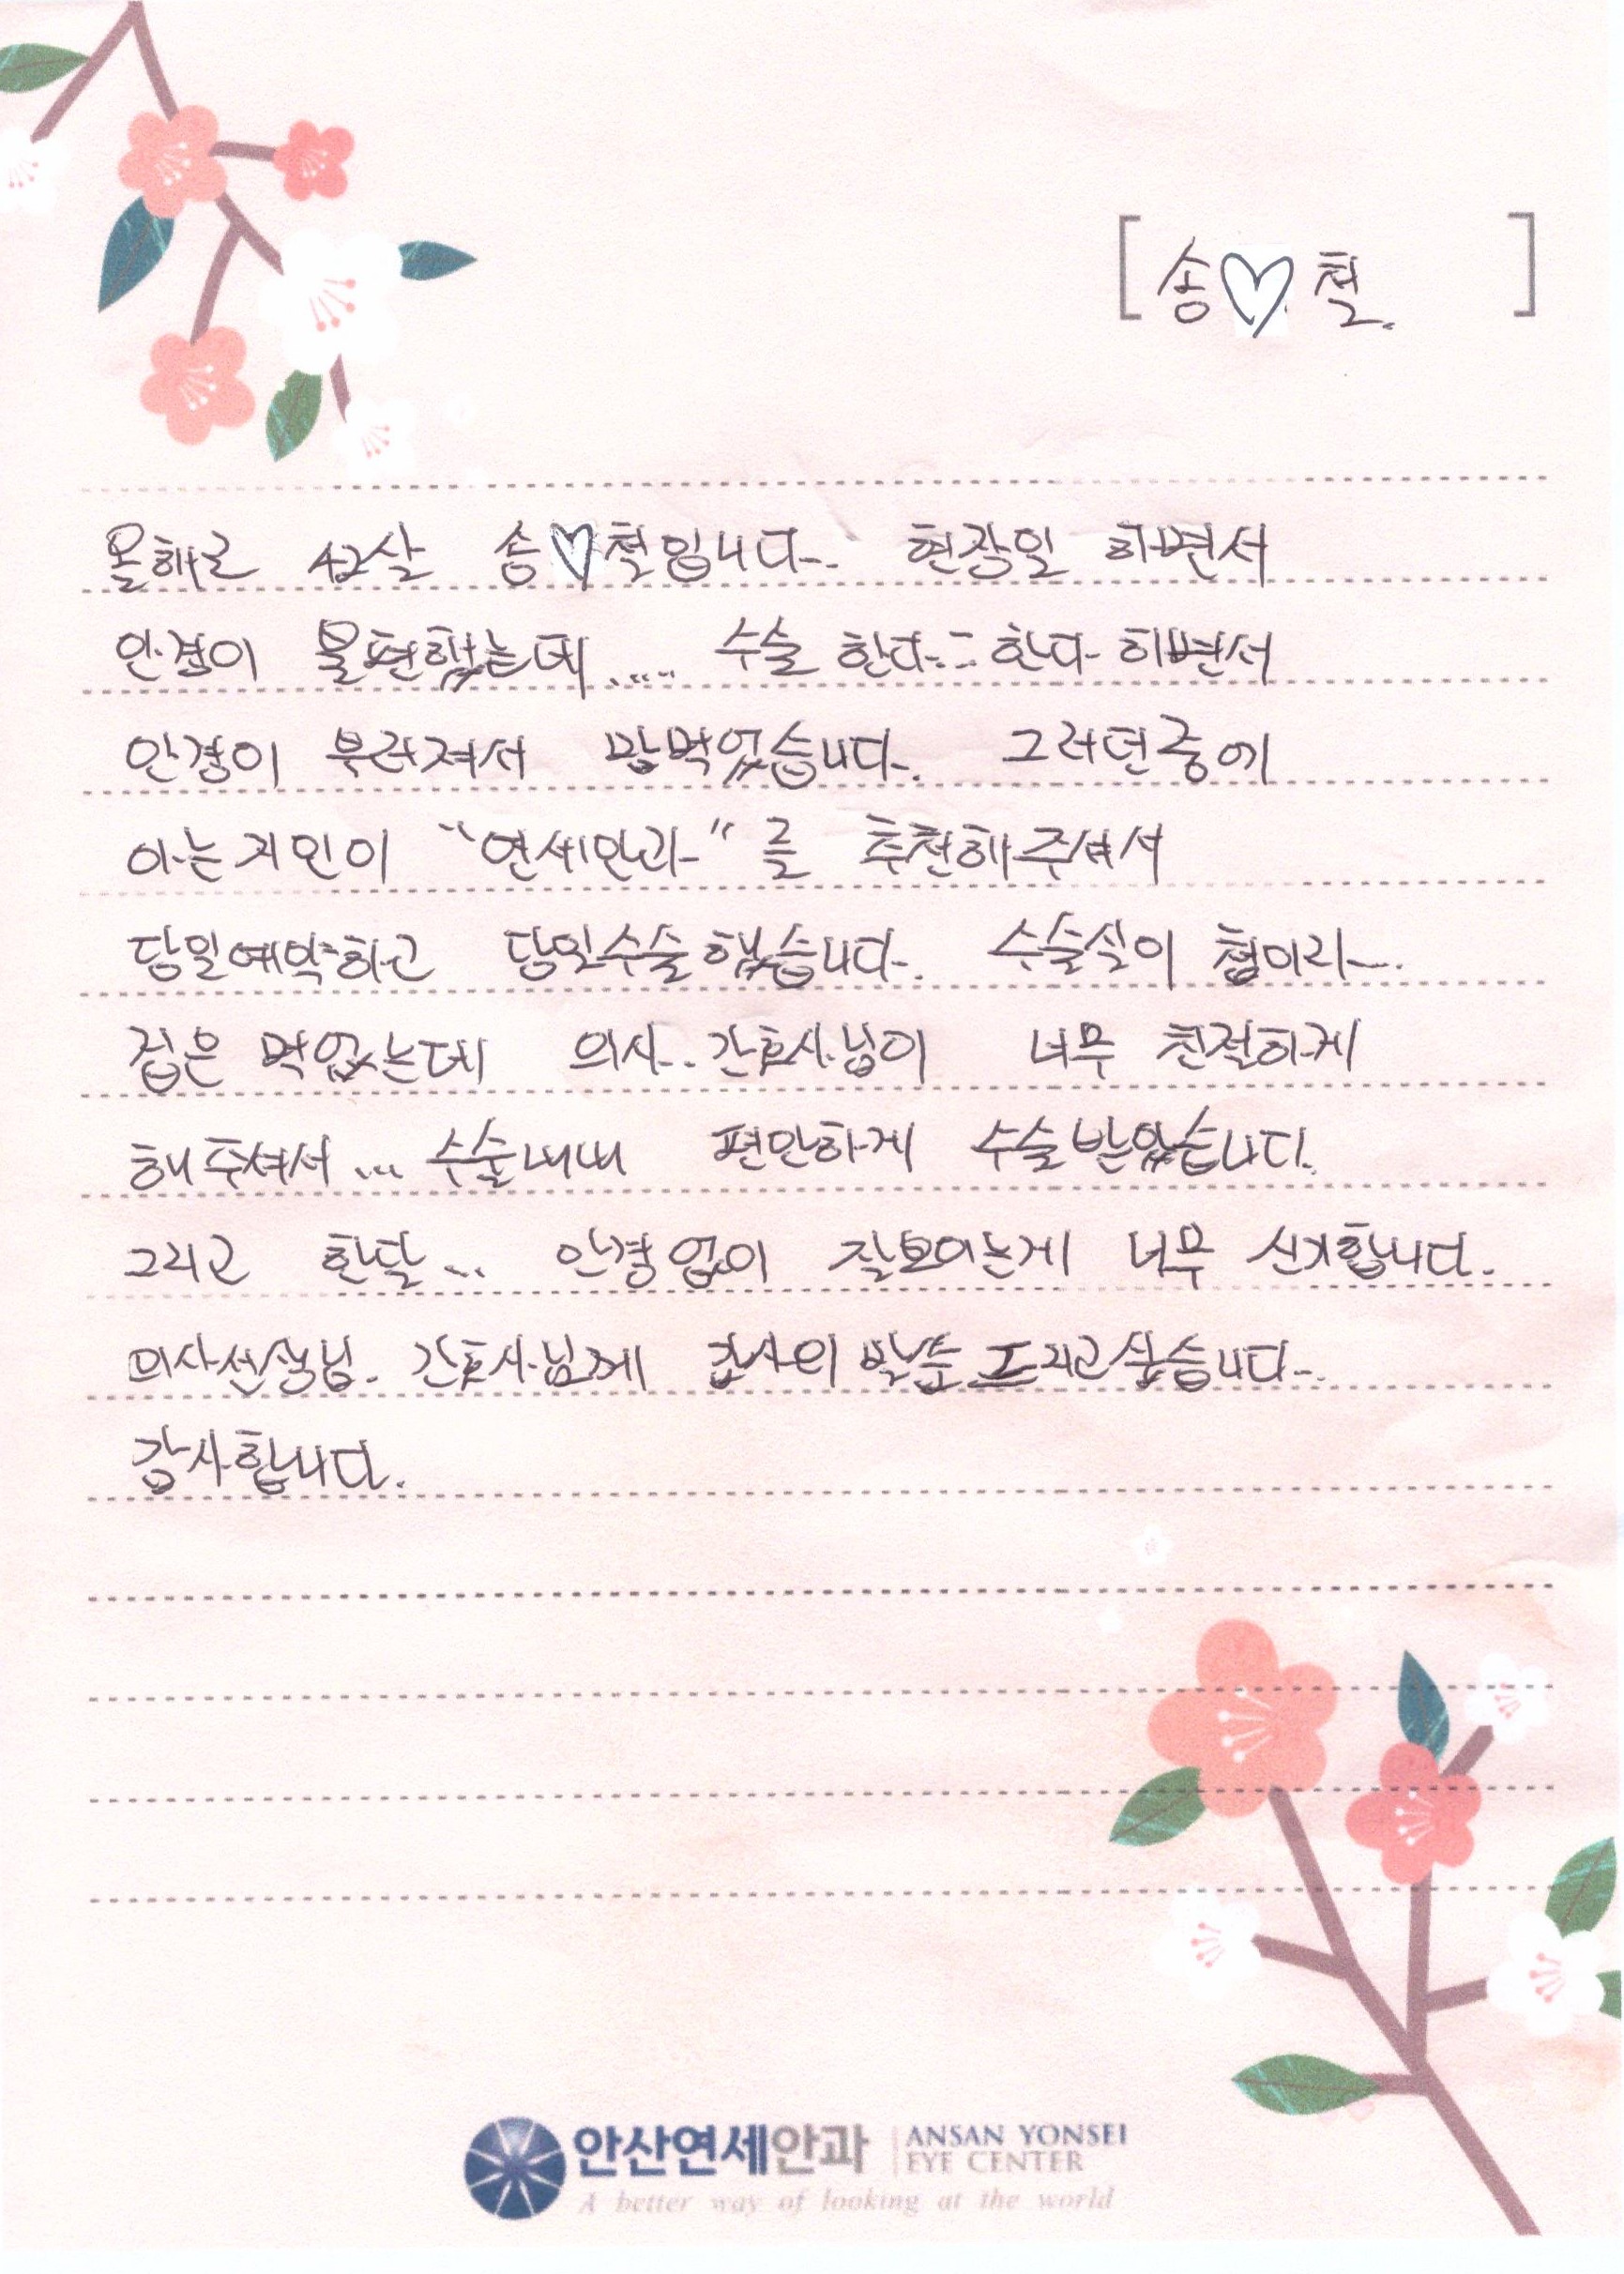 [송♡철.]
올해로 42살 송♡철입니다. 현장일 하면서
안경이 불편했는데.... 수술 한다.. 한다 하면서
안경이 부러져서 맘먹었습니다. 그러던중에
아는지인이 "연세안과"를 추천해주셔서
당일예약하고 당일수술했습니다. 수술실이 첨이라..
겁은 먹었는데 의사..간호사님이 너무 친절하게
해주셔서... 수술내내 편안하게 수술받았습니다.
그리고 한달... 안경없이 잘보이는게 너무 신기합니다.
의사선생님. 간호사님께 감사의 말씀 드리고싶습니다.
감사합니다.
안산연세안과 ANSAN YONSEI
EYE CENTER
A better way of looking at the world